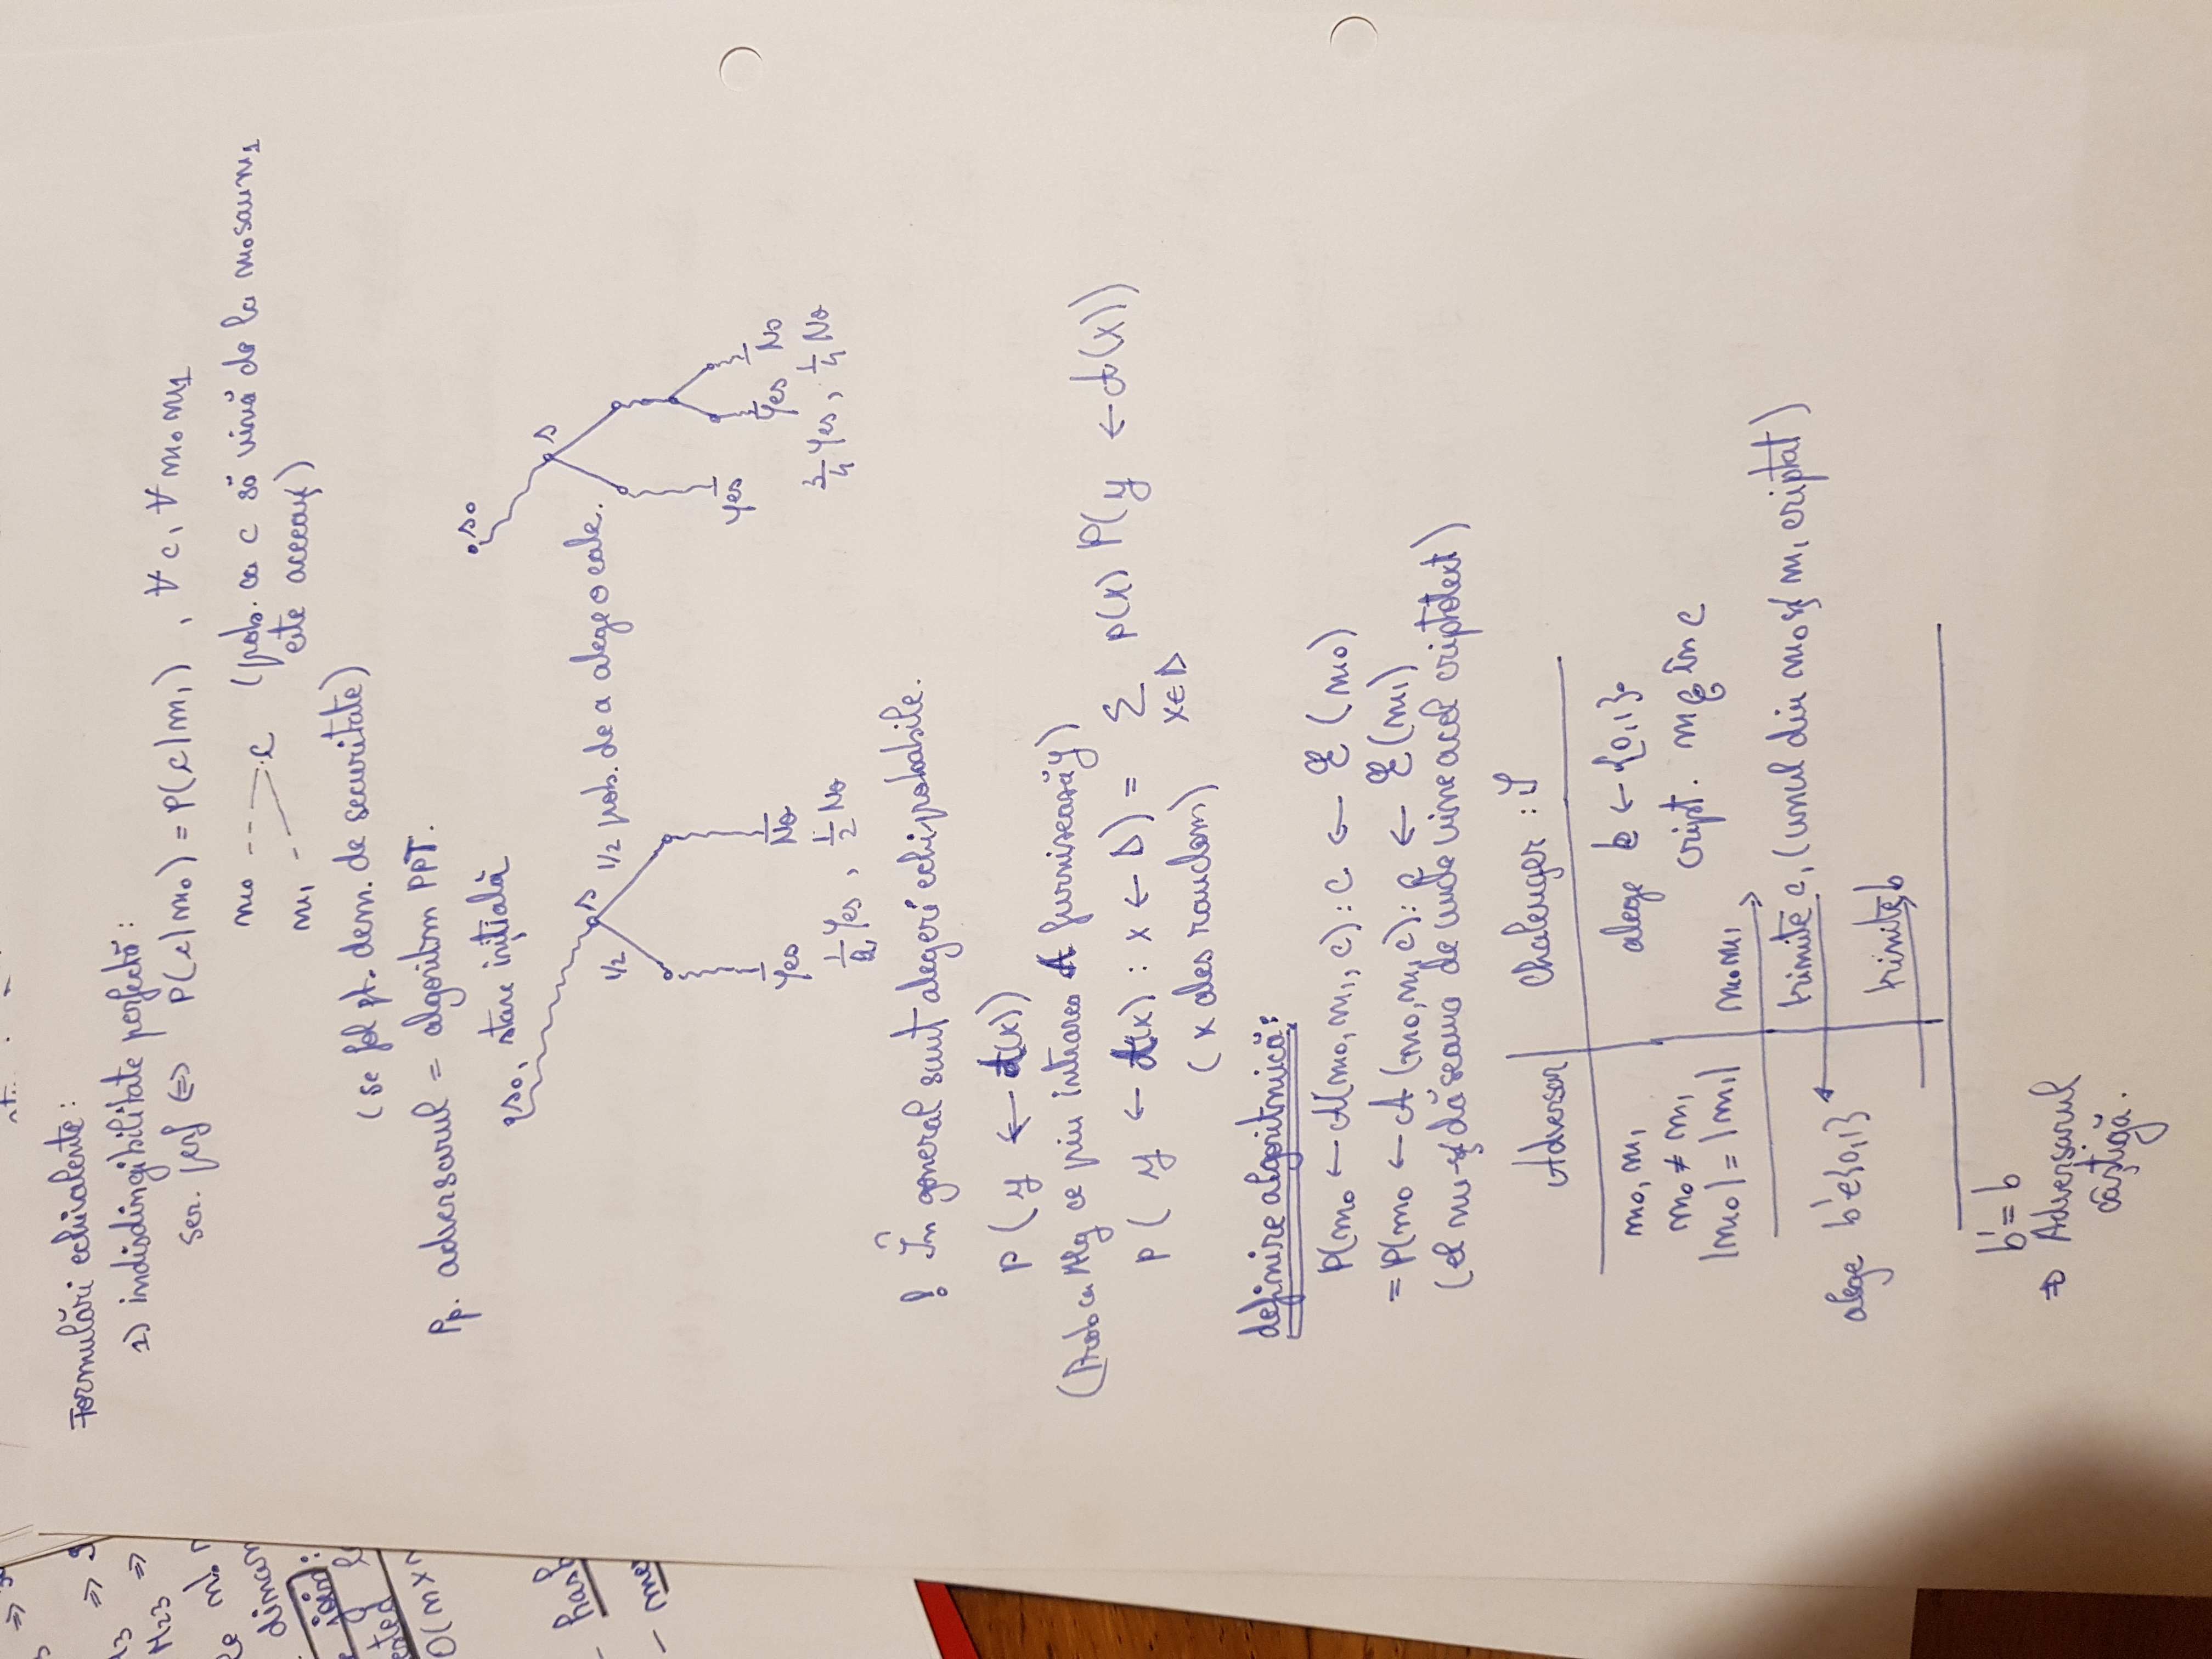 Formulări echivalente:
1) indisdingibilitate perfectă:
ser. perf <=> P(c/m0) = P(c/m1), ∀ c, ∀ m0 m1
m0
c (prob. ca c să vină de la m0 sau m1
m1 este aceeași)
(se fol pt. dem. de securitate)
Pp. adversarul = algoritm PPT.
s0, stare inițială
s0
s
s
1/2 1/2 prob. de a alege o cale.
Yes No
Yes
Yes No
1/2 Yes, 1/2 No
3/4 Yes, 1/4 No
! În general sunt alegeri echiprobabile.
P(y ← A(x))
(Prob ca Alg ce prin intrarea A furnisează y)
P(y ← A(x) : x ← D) = Σ P(x) P(y ← A(x))
x∈D
(x ales random)
definire algoritmică:
P(m0 ← A(m0, m1, c): c ← E(m0)
= P(m0 ← A(m0, m1, c): c ← E(m1)
(el nu-și dă seama de unde vine acel criptotext)
Adversar Chalenger : S
m0, m1 alege b ← {0,1}.
m0 ≠ m1 cript. mb în c
|m0| = |m1| m0 m1
trimite c, (unul din m0 și m1 criptat)
alege b'∈{0,1}
trimite b
b' = b
=> Adversarul
câștigă.
=> S
M23 =>
dinam
join:
O(m×n
- hash
- me